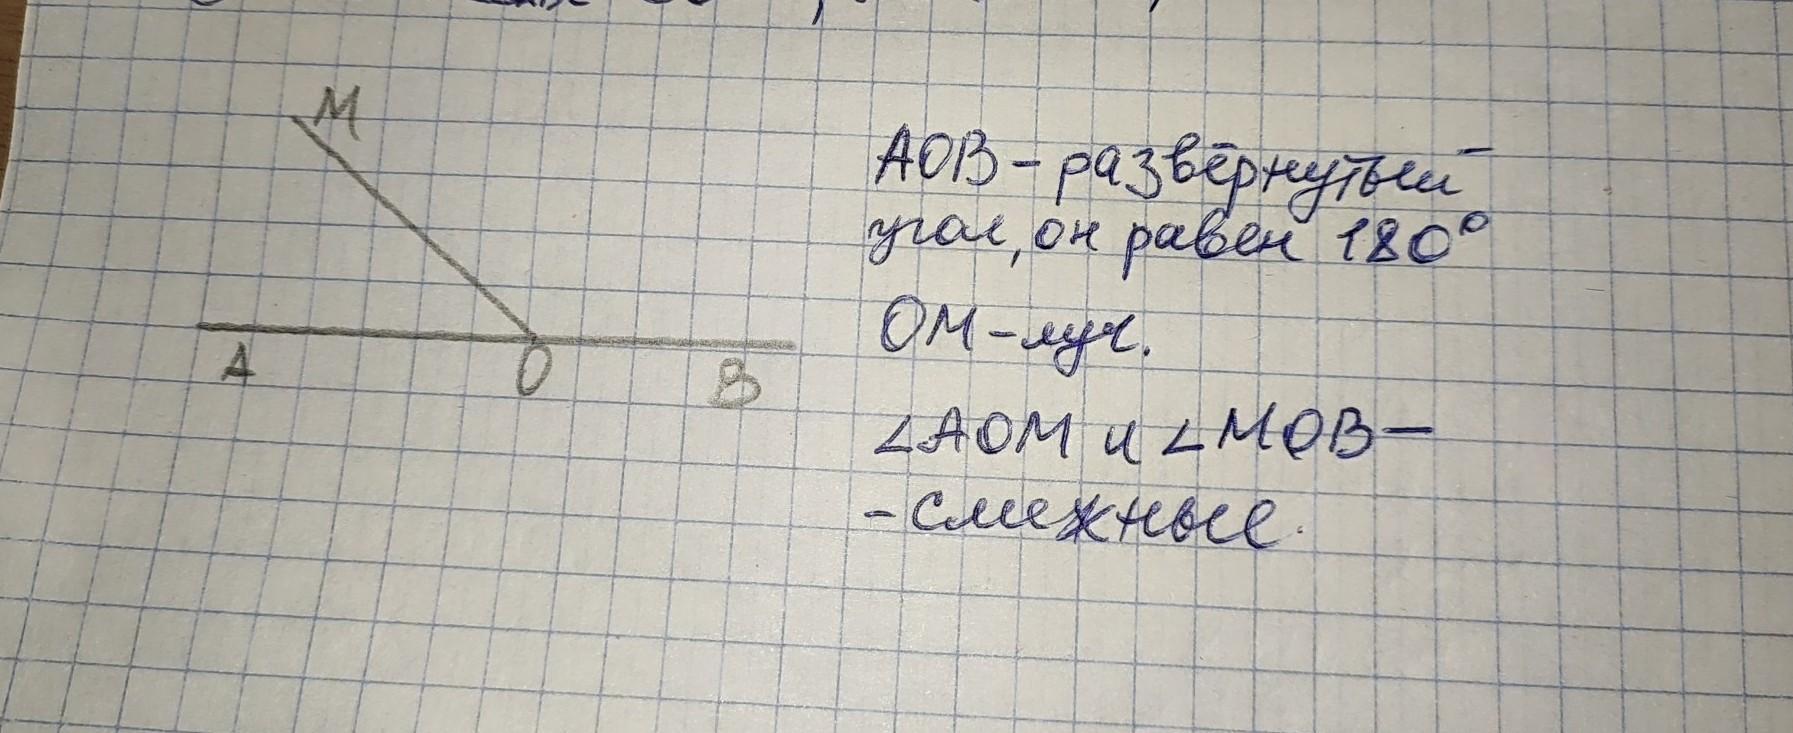 M
A
O
B
AOB - развёрнутый
угол, он равен 180°
OM - луч.
∠AOM и ∠MOB —
- смежные.